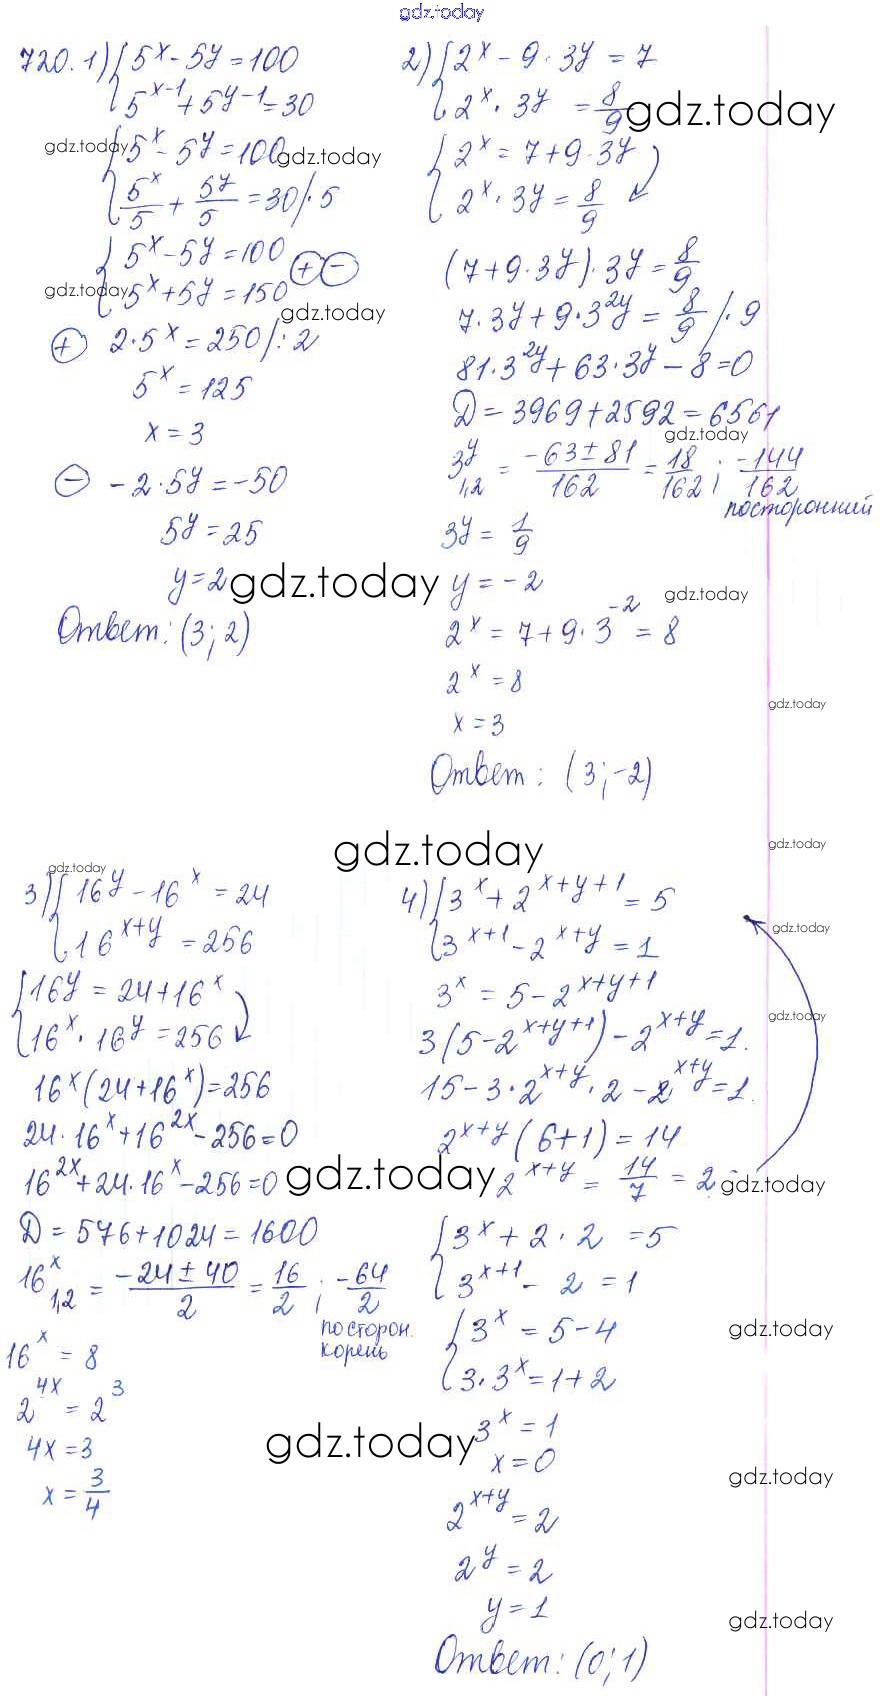 gdz.today
720. 1) { 5^x - 5^y = 100
5^(x-1) + 5^(y-1) = 30
gdz.today
{ 5^x - 5^y = 100
gdz.today
5^x/5 + 5^y/5 = 30 /· 5
{ 5^x - 5^y = 100
5^x + 5^y = 150 ⊕ ⊖
gdz.today
gdz.today
⊕ 2·5^x = 250 /: 2
5^x = 125
x = 3
⊖ -2·5^y = -50
5^y = 25
y = 2
gdz.today
Ответ: (3; 2)
2) { 2^x - 9·3^y = 7
2^x · 3^y = 8/9
gdz.today
{ 2^x = 7 + 9·3^y
2^x · 3^y = 8/9
(7 + 9·3^y)·3^y = 8/9
7·3^y + 9·3^2y = 8/9 /· 9
81·3^2y + 63·3^y - 8 = 0
D = 3969 + 2592 = 6561
gdz.today
3^y 1,2 = (-63 ± 81)/162 = 18/162 ; -144/162
посторонний
3^y = 1/9
y = -2
gdz.today
2^x = 7 + 9·3^-2 = 8
2^x = 8
gdz.today
x = 3
Ответ: (3; -2)
gdz.today
gdz.today
gdz.today
3) { 16^y - 16^x = 24
16^(x+y) = 256
{ 16^y = 24 + 16^x
16^x · 16^y = 256
16^x (24 + 16^x) = 256
24·16^x + 16^2x - 256 = 0
16^2x + 24·16^x - 256 = 0
gdz.today
D = 576 + 1024 = 1600
16^x 1,2 = (-24 ± 40)/2 = 16/2 ; -64/2
посторон.
корень
16^x = 8
2^4x = 2^3
4x = 3
gdz.today
x = 3/4
4) { 3^x + 2^(x+y+1) = 5
gdz.today
3^(x+1) - 2^(x+y) = 1
3^x = 5 - 2^(x+y+1)
gdz.today
3(5 - 2^(x+y+1)) - 2^(x+y) = 1.
15 - 3·2^(x+y)·2 - 2^(x+y) = 1.
2^(x+y) (6+1) = 14
2^(x+y) = 14/7 = 2
gdz.today
{ 3^x + 2·2 = 5
3^(x+1) - 2 = 1
{ 3^x = 5 - 4
gdz.today
3·3^x = 1 + 2
3^x = 1
x = 0
gdz.today
2^(x+y) = 2
2^y = 2
y = 1
gdz.today
Ответ: (0; 1)